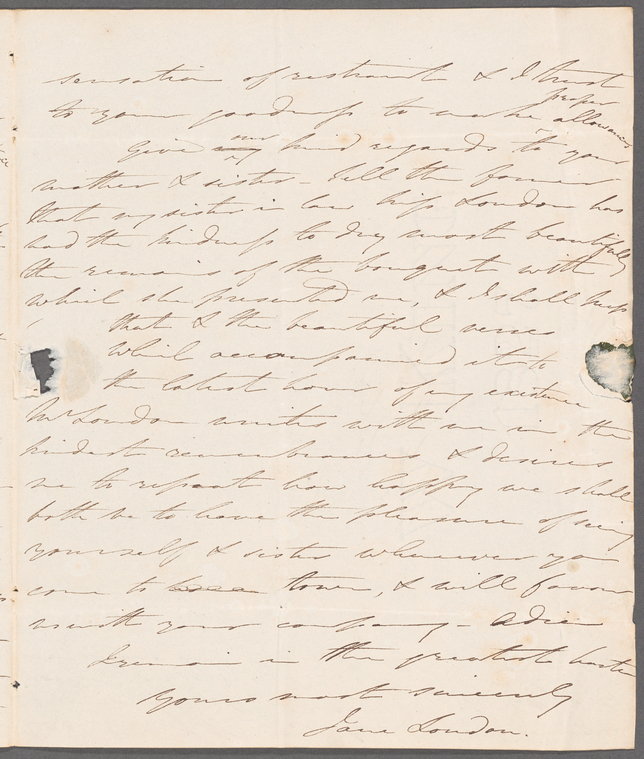 sensation of restraint & I trust
to your goodness to make proper allowances
Give my our kind regards to your
mother & sister – Tell the former
that my sister in law Miss Loudon has
had the kindness to dry most beautifully
the remains of the bouquet with
which she presented me, & I shall keep
that & the beautiful verses
which accompanied it to
the latest hour of my existence
Mr Loudon unites with me in the
kindest remembrances & desires
me to repeat how happy we shall
both be to have the pleasure of seeing
yourself & sister whenever you
come to town, & will favour
us with your company – adieu
I remain in the greatest haste
yours most sincerely
Jane Loudon.